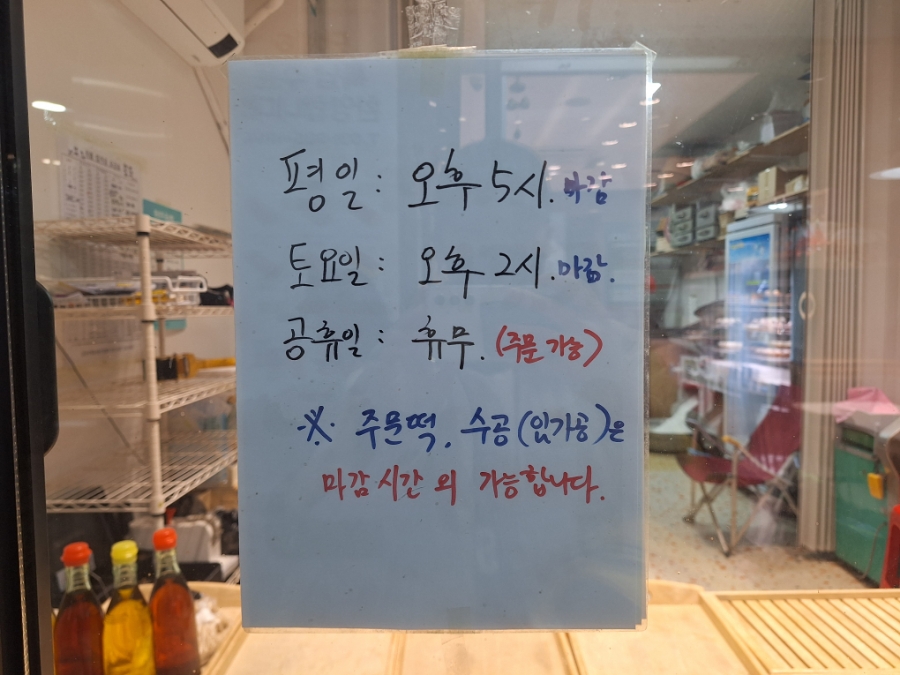 평일 : 오후 5시. 마감
토요일 : 오후 2시. 마감.
공휴일 : 휴무. (주문 가능)
※ 주문떡. 수공(임가공)은
마감시간 외 가능합니다.